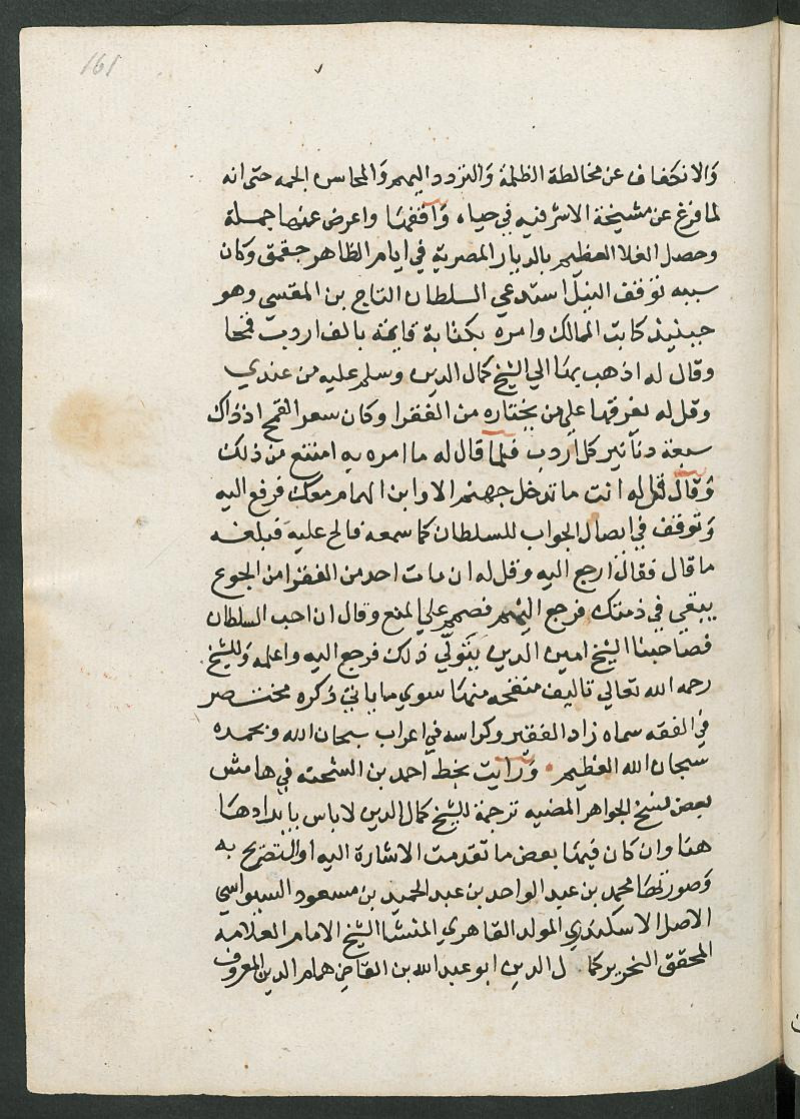 161
والانكفاف عن مخالطة الظلمة والتردد اليهم والمحاسن الجمه حتى انه
لما فرغ عن مشيخة الاشرفيه في حياة واقفها واعرض عنها جملة
وحصل الغلا العظيم بالديار المصرية في ايام الظاهر جقمق وكان
سببه توقف النيل استدعي السلطان التاج بن المقسي وهو
حينيذ كاتب المماليك وامره بكتابة قايمة بالف اردب قمحا
وقال له اذهب بها الي الشيخ كمال الدين وسلم عليه من عندي
وقل له يفرقها علي من يختاره من الفقرا وكان سعر القمح اذ ذاك
سبعة دنانير كل اردب فلما قال له ما امره به امتنع من ذلك
وقال قل له انت ما تدخل جهنم الا وابن الهمام معك فرفع اليه
وتوقف في ايصال الجواب للسلطان كما سمعه فالح عليه فبلغه
ما قال فقال ارجع اليه وقل له ان مات احد من الفقرا من الجوع
يبقي في ذمتك فرجع اليهم فصمم علي المنع وقال ان احب السلطان
فصاحبنا الشيخ امين الدين يتولي ذلك فرجع اليه واعلمه وللشيخ
رحمه الله تعالي تاليف منقحه منها سوي ما ياتي ذكره مختصر
في الفقه سماه زاد الفقير وكراسه في اعراب سبحان الله وبحمده
سبحان الله العظيم • ورايت بخط احمد بن الشحنه في هامش
بعض نسخ الجواهر المضيه ترجمة للشيخ كمال الدين لا باس بايرادها
هنا وان كان فيها بعض ما تقدمت الاشارة اليه او التصريح به
وصورتها محمد بن عبد الواحد بن عبد الحميد بن مسعود السيواسي
الاصل الاسكندري المولد القاهري المنشا الشيخ الامام العلامه
المحقق النحرير كمال الدين ابو عبد الله بن القاضي همام الدين المعروف